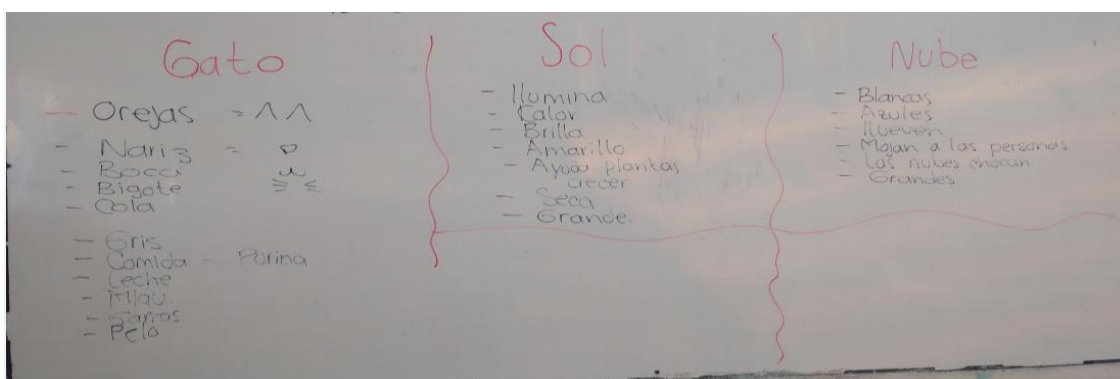 Gato
- Orejas =
- Nariz =
- Boca
- Bigote
- Cola
- Gris
- Comida - Purina
- Leche
- Miau.
- Garros
- Pelo
Sol
- Ilumina
- Calor
- Brilla
- Amarillo
- Ayuda plantas
crecer
- Seca
- Grande.
Nube
- Blancas
- Azules
- llueven
- Mojan a las personas
- Las nubes chocan
- Grandes